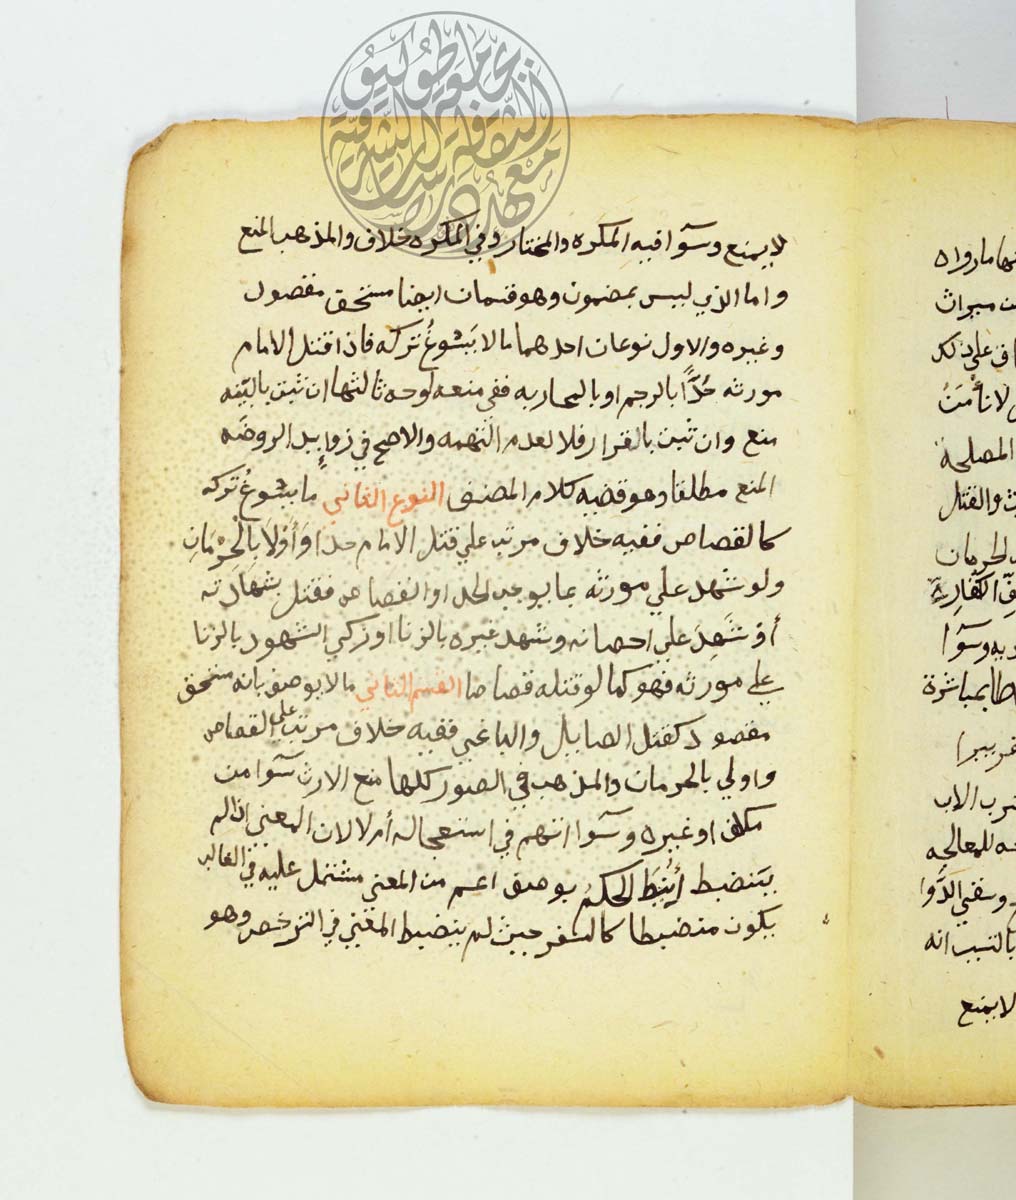 لا يمنع وسوآ فيه المكره والمختار وفي المكره خلاف والمذهب المنع
واما الذي ليس بمضمون وهو قسمان ايضا مستحق مقصود
وغيره والاول نوعان احدهما ما لا يَسُوغُ تركه فاذا قتل الامام
مورثه حُدًّا بالرجم او بالمحاربه ففي منعه اوجه ثالثها ان ثبت بالبينه
منع وان ثبت بالاقرار فلا لعدم التهمه والاصح في زوايد الروضه
المنع مطلقا وهو قضيه كلام المصنف النوع الثاني ما يسُوغ تركه
كالقصاص ففيه خلاف مرتب علي قتل الامام حدا وَأَوْلَا بِالْحِرْمَانِ
ولو شهد علي مورثه بما يوجب الحد او القصاص فقتل بشهادته
أو شَهِدَ علي احصانه وشهد غيره بالزنا او زكي الشهود بالزنا
علي مورثه فهو كما لو قتله قصاصا القسم الثاني ما لا يوصف بانه مستحق
مقصود كقتل الصايل والباغي ففيه خلاف مرتب علي القصاص
واولي بالحرمان والمذهب في الصور كلها منع الارث سوآ من
مكلف او غيره وسوآ اتهم في استعجاله أم لا لان المعني اذا لم
ينضبط أُنِيطَ الحكمُ بوصف اعم من المعني مشتمل عليه في الغالب
يكون منضبطا كالسفر حيث لم ينضبط المعني في الترخص وهو
نها ما رواه
من ميراث
علي ذلك
لا نأمَنُ
المصلحة
والقتل
الحرمان
الكفارة
به وسوآ
بمباشرة
ضرب الاب
للمعالجه
وسقي الدَّوا
بالسبب انه
لا يمنع
معهد الثقافة والدراسات الشرقية
جامعة طوكيو